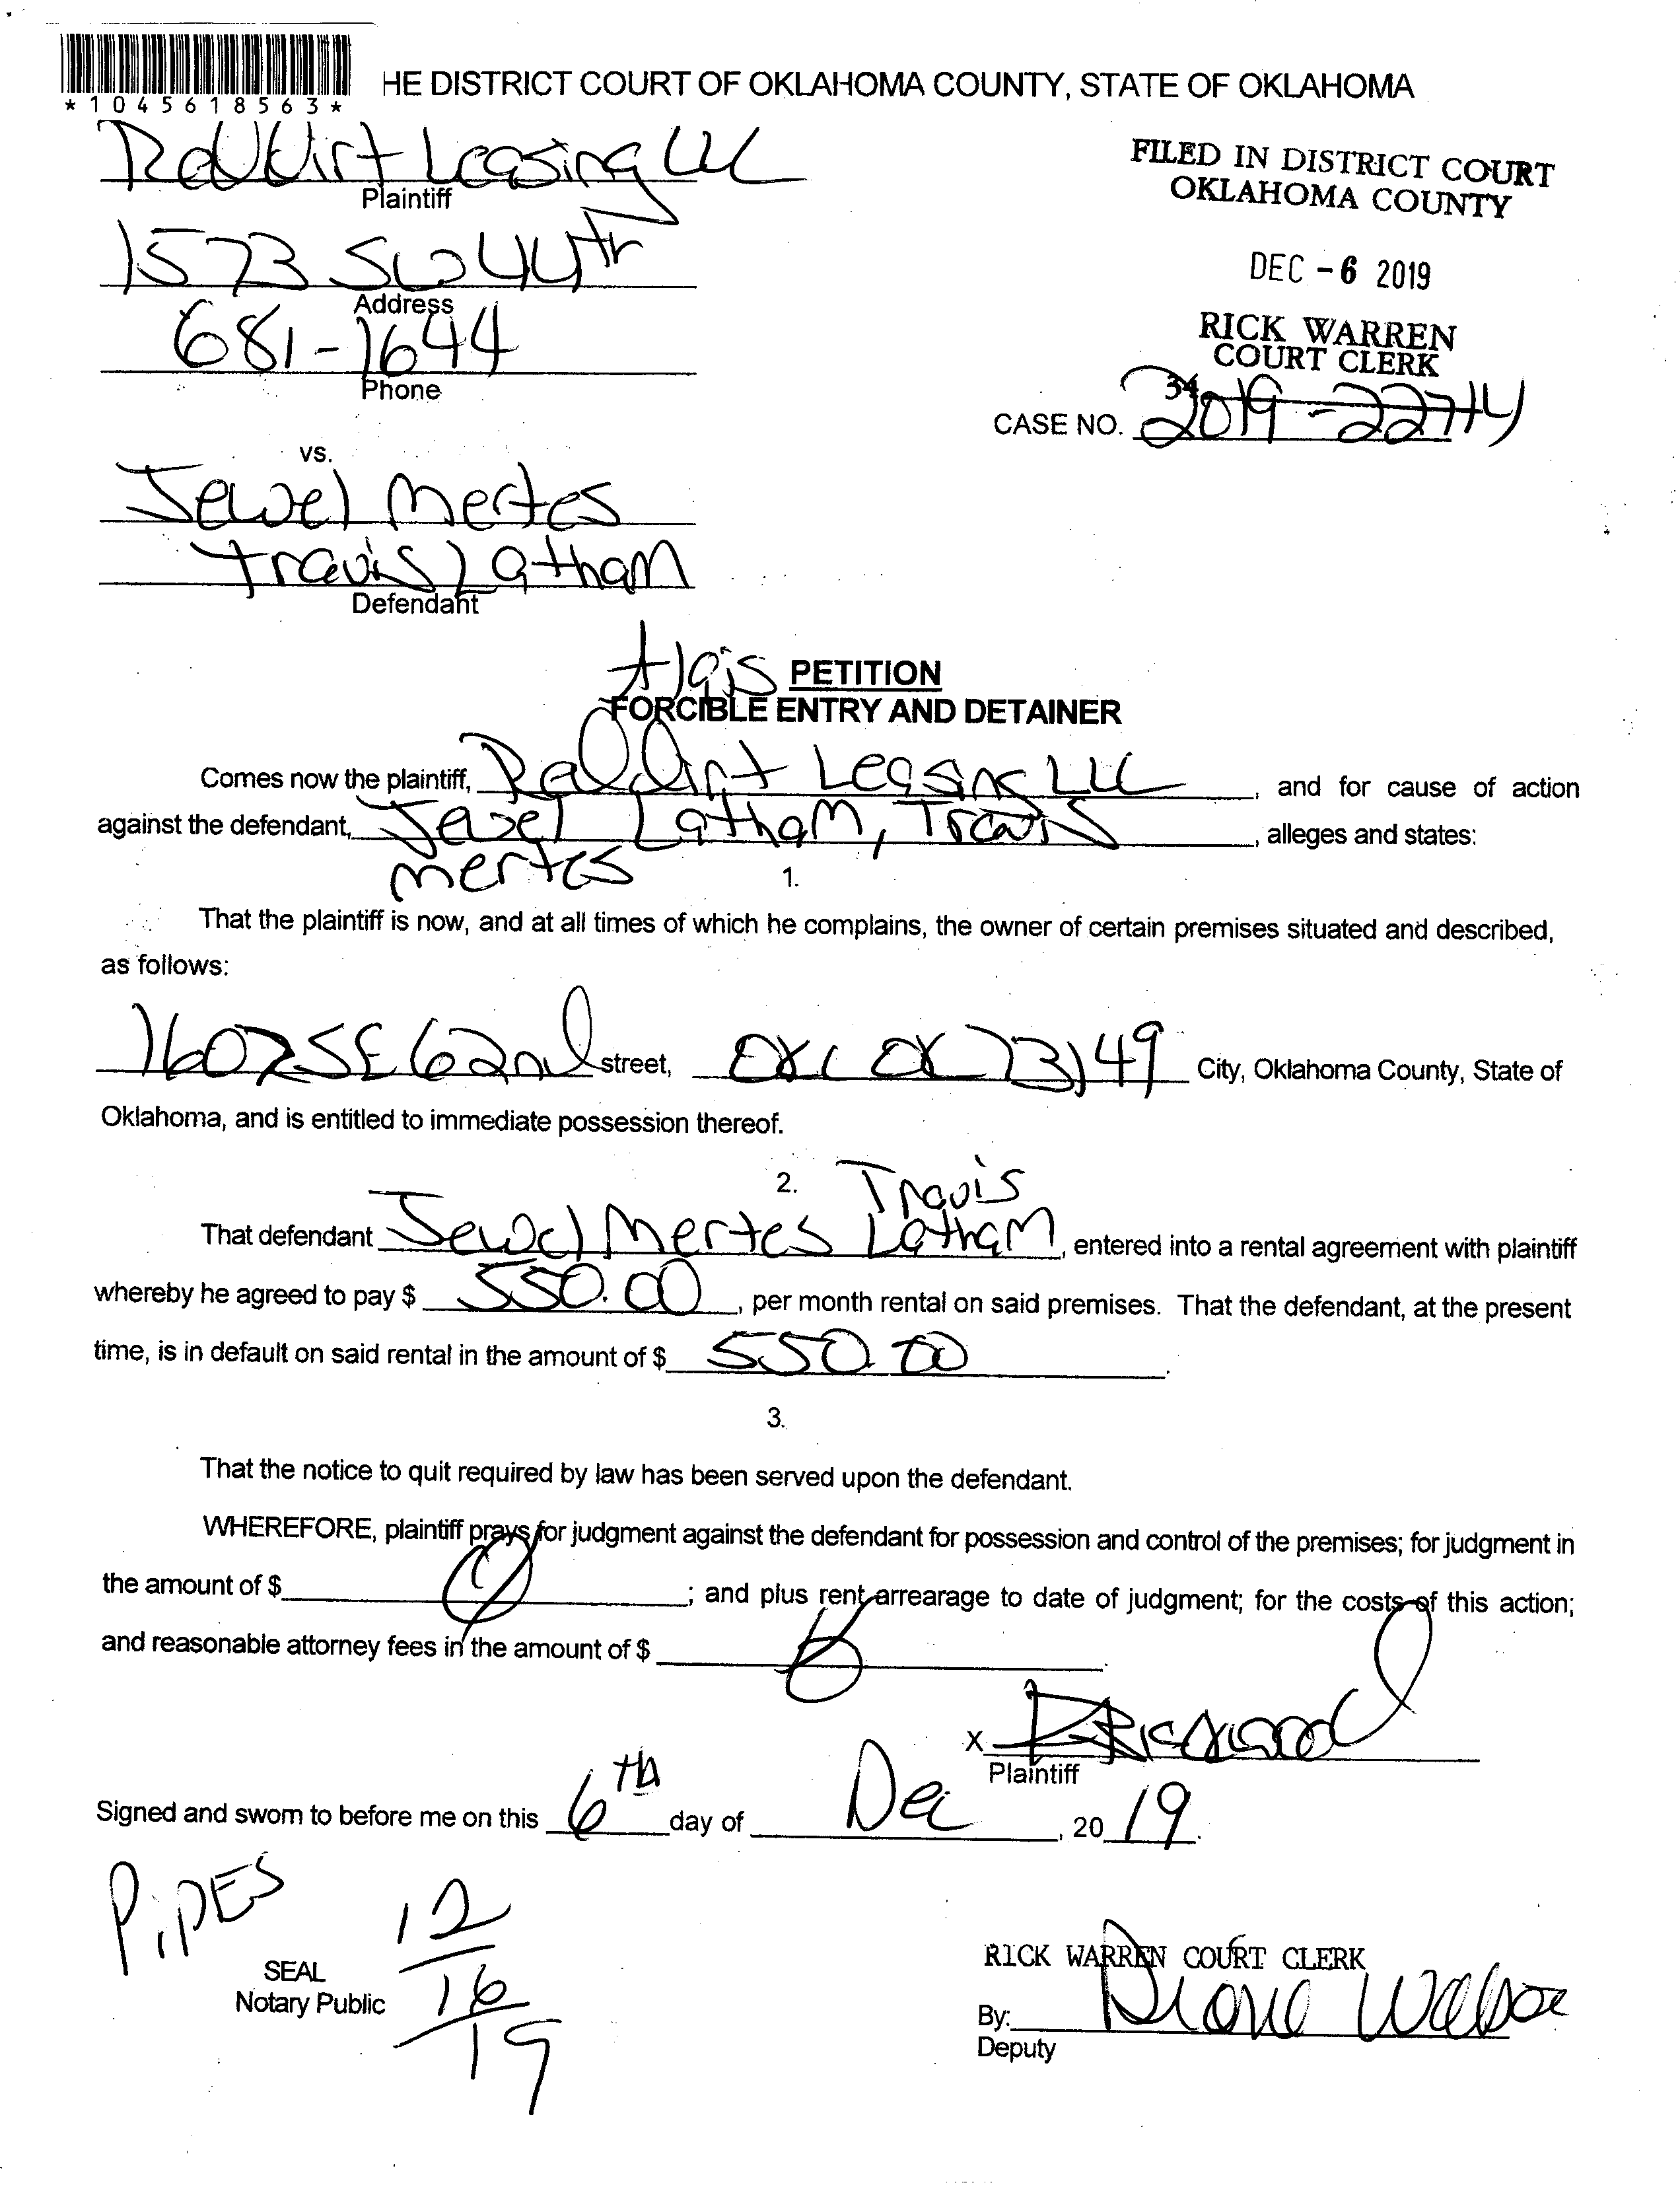 *1045618563*
HE DISTRICT COURT OF OKLAHOMA COUNTY, STATE OF OKLAHOMA
Red Dirt Leasing LLC
Plaintiff
FILED IN DISTRICT COURT
OKLAHOMA COUNTY
1573 SW 44th
Address
DEC - 6 2019
681-1644
Phone
RICK WARREN
COURT CLERK
34
CASE NO. 2019-22714
vs.
Jewel Mertes
Travis Latham
Defendant
PETITION
FORCIBLE ENTRY AND DETAINER
Comes now the plaintiff, Red Dirt Leasing LLC, and for cause of action
against the defendant, Jewel Latham, Travis, alleges and states:
Mertes
1.
That the plaintiff is now, and at all times of which he complains, the owner of certain premises situated and described,
as follows:
1607 SE 62nd street, OKC OK 73149 City, Oklahoma County, State of
Oklahoma, and is entitled to immediate possession thereof.
2.
Travis
That defendant Jewel Mertes Latham, entered into a rental agreement with plaintiff
whereby he agreed to pay $ 550.00, per month rental on said premises. That the defendant, at the present
time, is in default on said rental in the amount of $ 550.00.
3.
That the notice to quit required by law has been served upon the defendant.
WHEREFORE, plaintiff prays for judgment against the defendant for possession and control of the premises; for judgment in
the amount of $ ; and plus rent arrearage to date of judgment; for the costs of this action;
and reasonable attorney fees in the amount of $ .
X
Plaintiff
Signed and sworn to before me on this 6th day of Dec, 2019.
PIPES
12
16
19
SEAL
Notary Public
RICK WARREN COURT CLERK
By:
Deputy